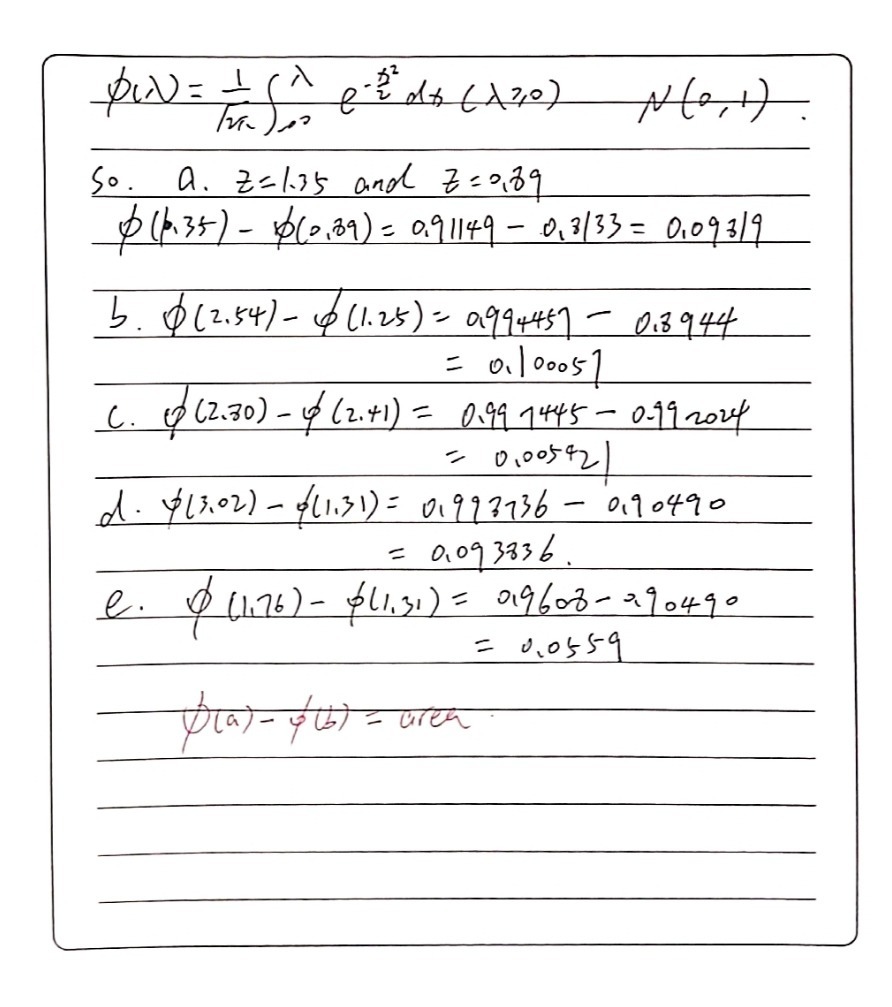 φ(λ) = 1/√2π ∫_{-∞}^{λ} e^{-x²/2} dx (λ≥0) N(0,1).
So. a. z=1.35 and z=0.89
φ(1.35) - φ(0.89) = 0.91149 - 0.8133 = 0.09819
b. φ(2.54) - φ(1.25) = 0.994457 - 0.8944
= 0.100057
c. φ(2.80) - φ(2.41) = 0.997445 - 0.992024
= 0.005421
d. φ(3.02) - φ(1.31) = 0.998736 - 0.90490
= 0.093836.
e. φ(1.76) - φ(1.31) = 0.9608 - 0.90490
= 0.0559
φ(a) - φ(b) = area.